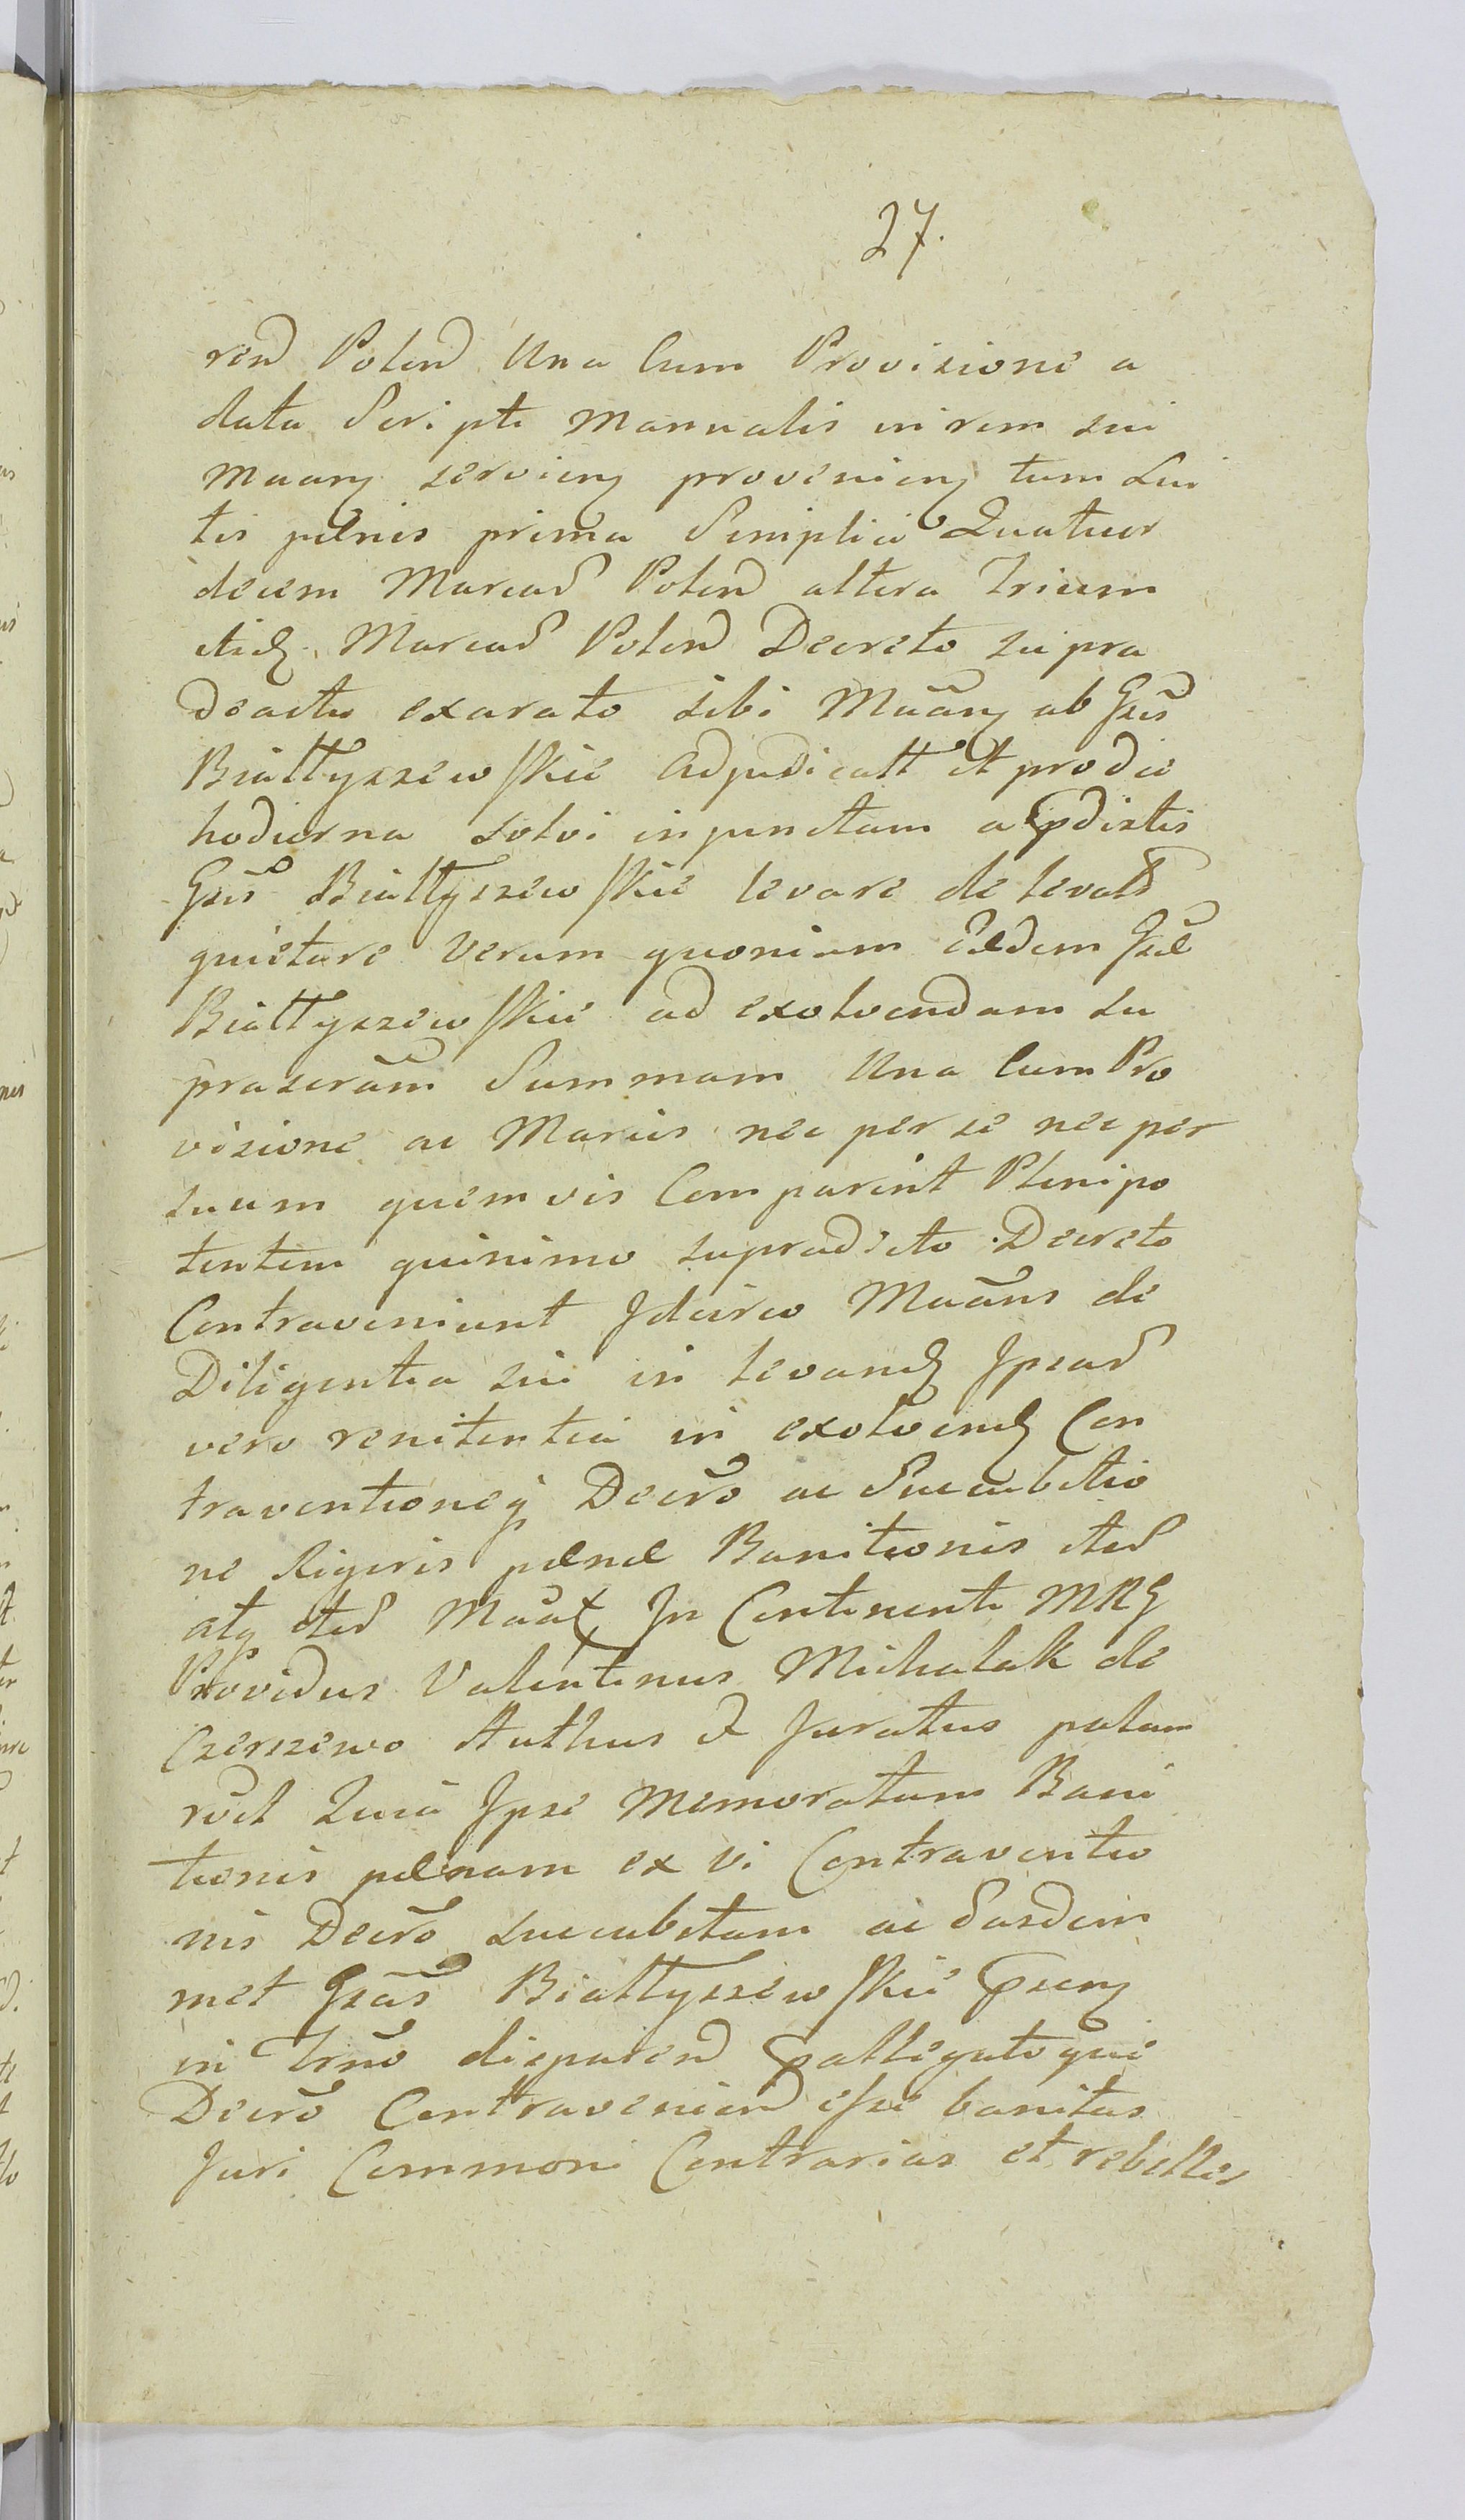 27.
ren Polon Una Cum Provisione a
data Scripti Manualis in rem sui
Maany servien provenien tum Lui
tis pœnis prima Simplici Quatuor
decem Marcar Polon altera Trium
itid. Marcar Polon Decreto supra
deactu exarato sibi Maany ab Gsis
Białłyszewskie Adjudicatt et prodie
hodierna solvi injunctam a pdistis
Gsis Białłyszewskie levare de levatis
quietare Verum quoniam Eædem Gsæ
Białłyszewskie ad exolvendam su
praseram Summam Una Cum Pro
visione ac Marcis nec per se nec per
suum quemvis Comparent Plenipo
tentem quinimo supradicto Decreto
Contraveniunt Idcirco Maans de
Diligentia sui in levand Ipsar
vero renitentia in exolvend Con
traventioneq Decro ac Succubitio
ne Rigoris pœnæ Banitionis
atq Maat In Continenti MRG
Providus Valentinus Michalak de
Czerszewo Authus et Juratus palam
rõt Quia Ipse Memoratam Bani
tionis pœnam ex vi Contraventio
nis Decro succubitam ac Easdem
met Gsas Białłyszewskie
in Trno disparen pallegatoque
Decro Contravenien esse banitas
Juri Commoni Contrarias et rebelles